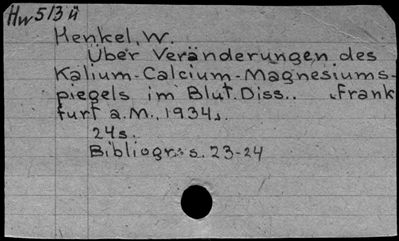 Hw 513 ü
Henkel, W.
Über Veränderungen des
Kalium-Calcium-Magnesiums-
piegels im Blut. Diss.. Frank
furt a.M., 1934.
24s.
Bibliogr: s. 23-24